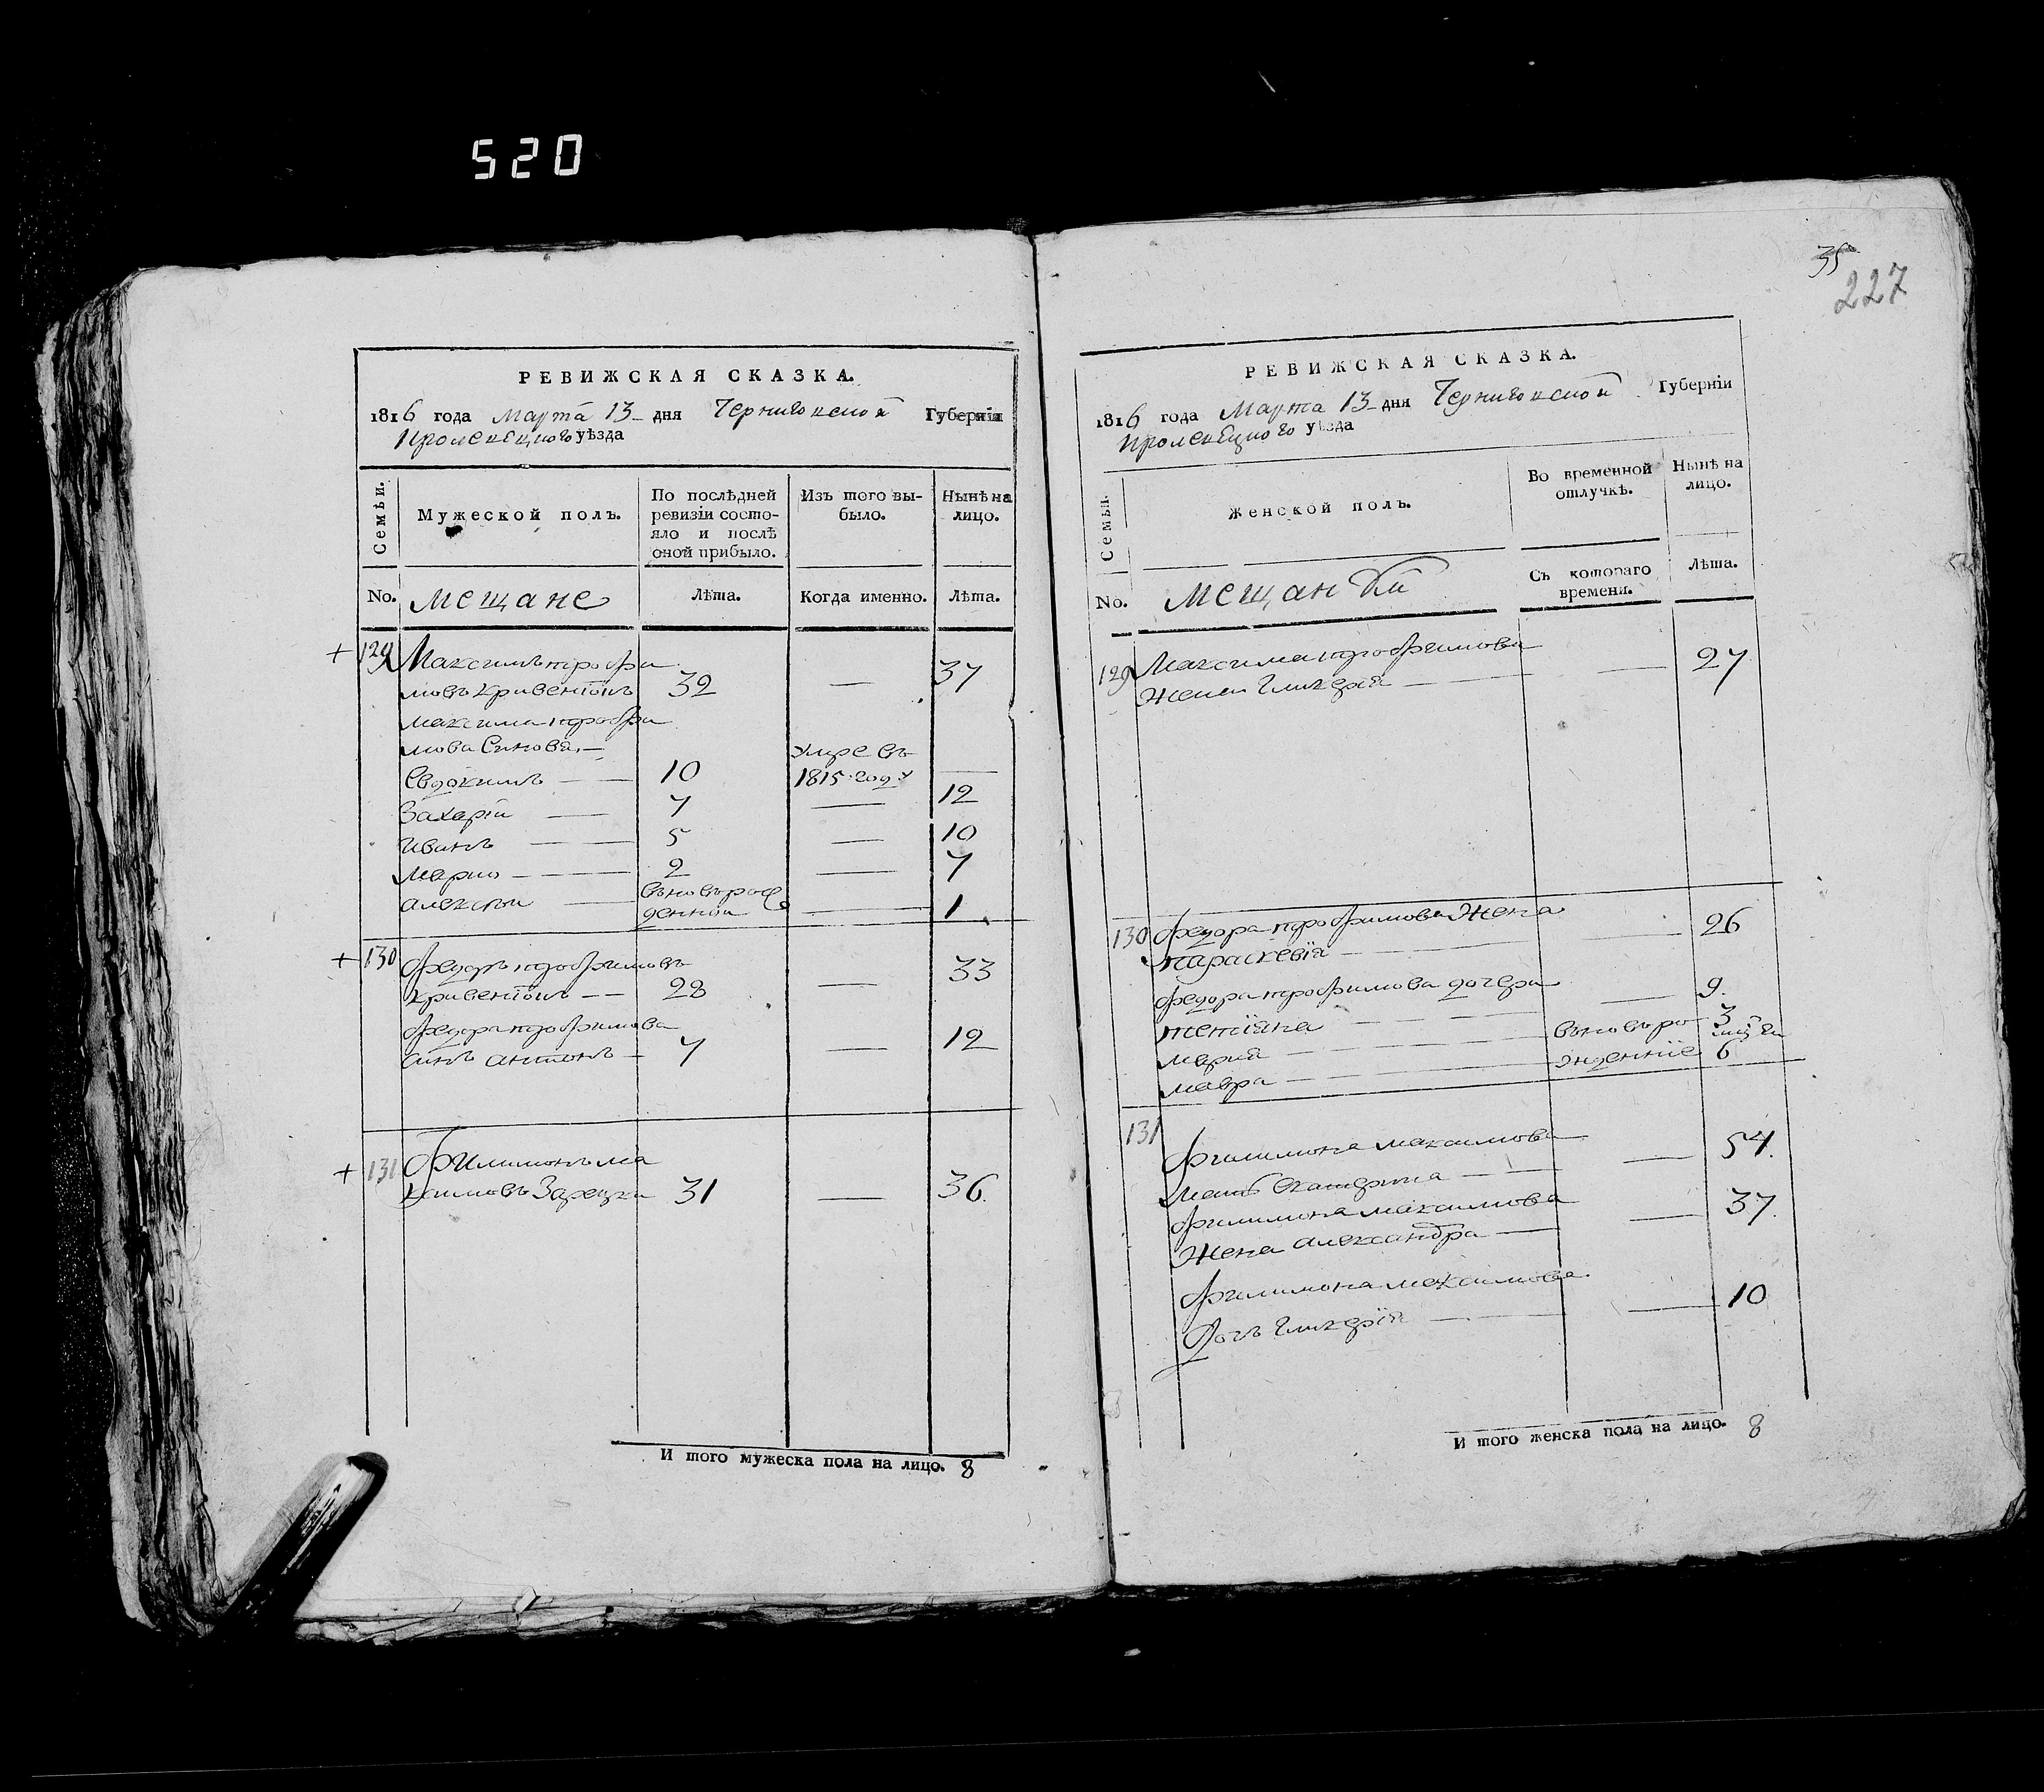 520
35
227
РЕВИЖСКАЯ СКАЗКА.
1816 года Марта 13 дня Черниговской Губерніи
Кролевецкого уѣзда
Семьи.
Мужеской полъ.
По послѣдней ревизіи состо-
яло и послѣ оной прибыло.
Изъ того вы-
было.
Нынѣ на лицо.
No. мещане
Лѣта.
Когда именно.
Лѣта.
+ 129 Максимъ трофи
мовъ Кривенковъ 32 — 37
максима трофи
мова Синовя —
Евдокимъ — 10 Умре въ 1815 году —
Захарій — 7 — 12
Иванъ — 5 — 10
марко — 2 — 7
алексей — вновьрож
денной — 1
+ 130 Федоръ трофимовъ
Кривенковъ — 28 — 33
Федора трофимова
синъ антонъ — 7 — 12
+ 131 Филимонъ ма
ксимовъ 31 — 36.
И того мужеска пола на лицо. 8
РЕВИЖСКАЯ СКАЗКА.
1816 года Марта 13 дня Черниговской Губерніи
Кролевецкого уѣзда
Семьи.
Женской полъ.
Во временной отлучкѣ.
Нынѣ на лицо.
No. мещанки
Съ котораго времени.
Лѣта.
129 Максима трофимова
Жена Гликерія — — 27
130 Федора трофимова Жена
параскевія — — 26
Федора трофимова дочери
татіяна — — 9.
марія — вновьро 3
мавра — жденніе 6
131 Филимона максимова
мать Екатерина — — 54.
филимона максимова
Жена александра — — 37.
Филимона максимова
Дочь Гликерія — — 10
И того женска пола на лицо. 8